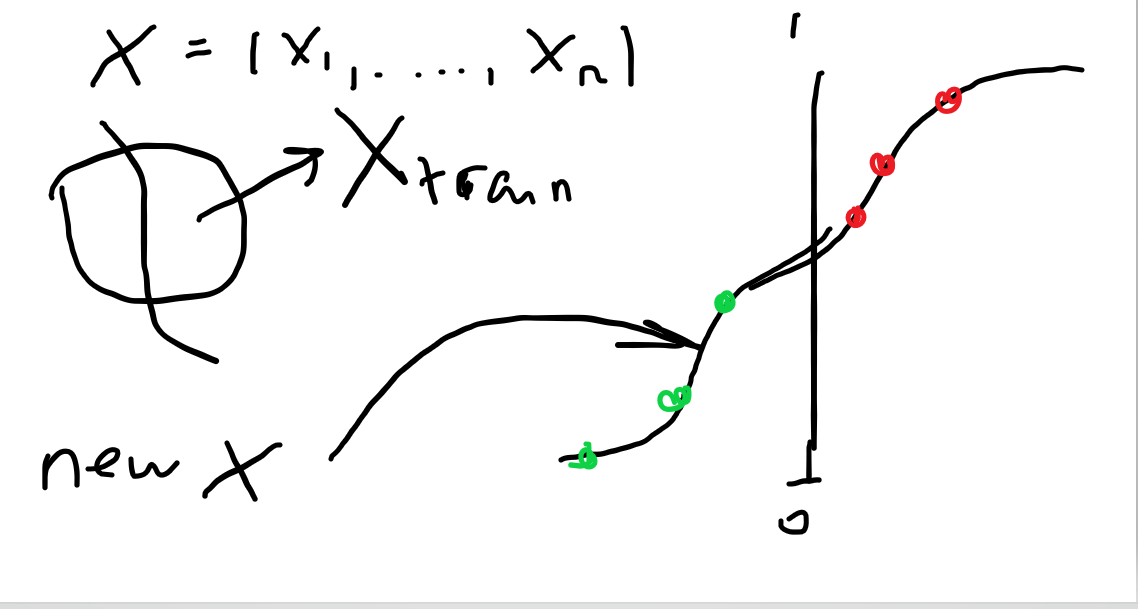 X = | X₁, ....., Xₙ |
1
X train
new X
0